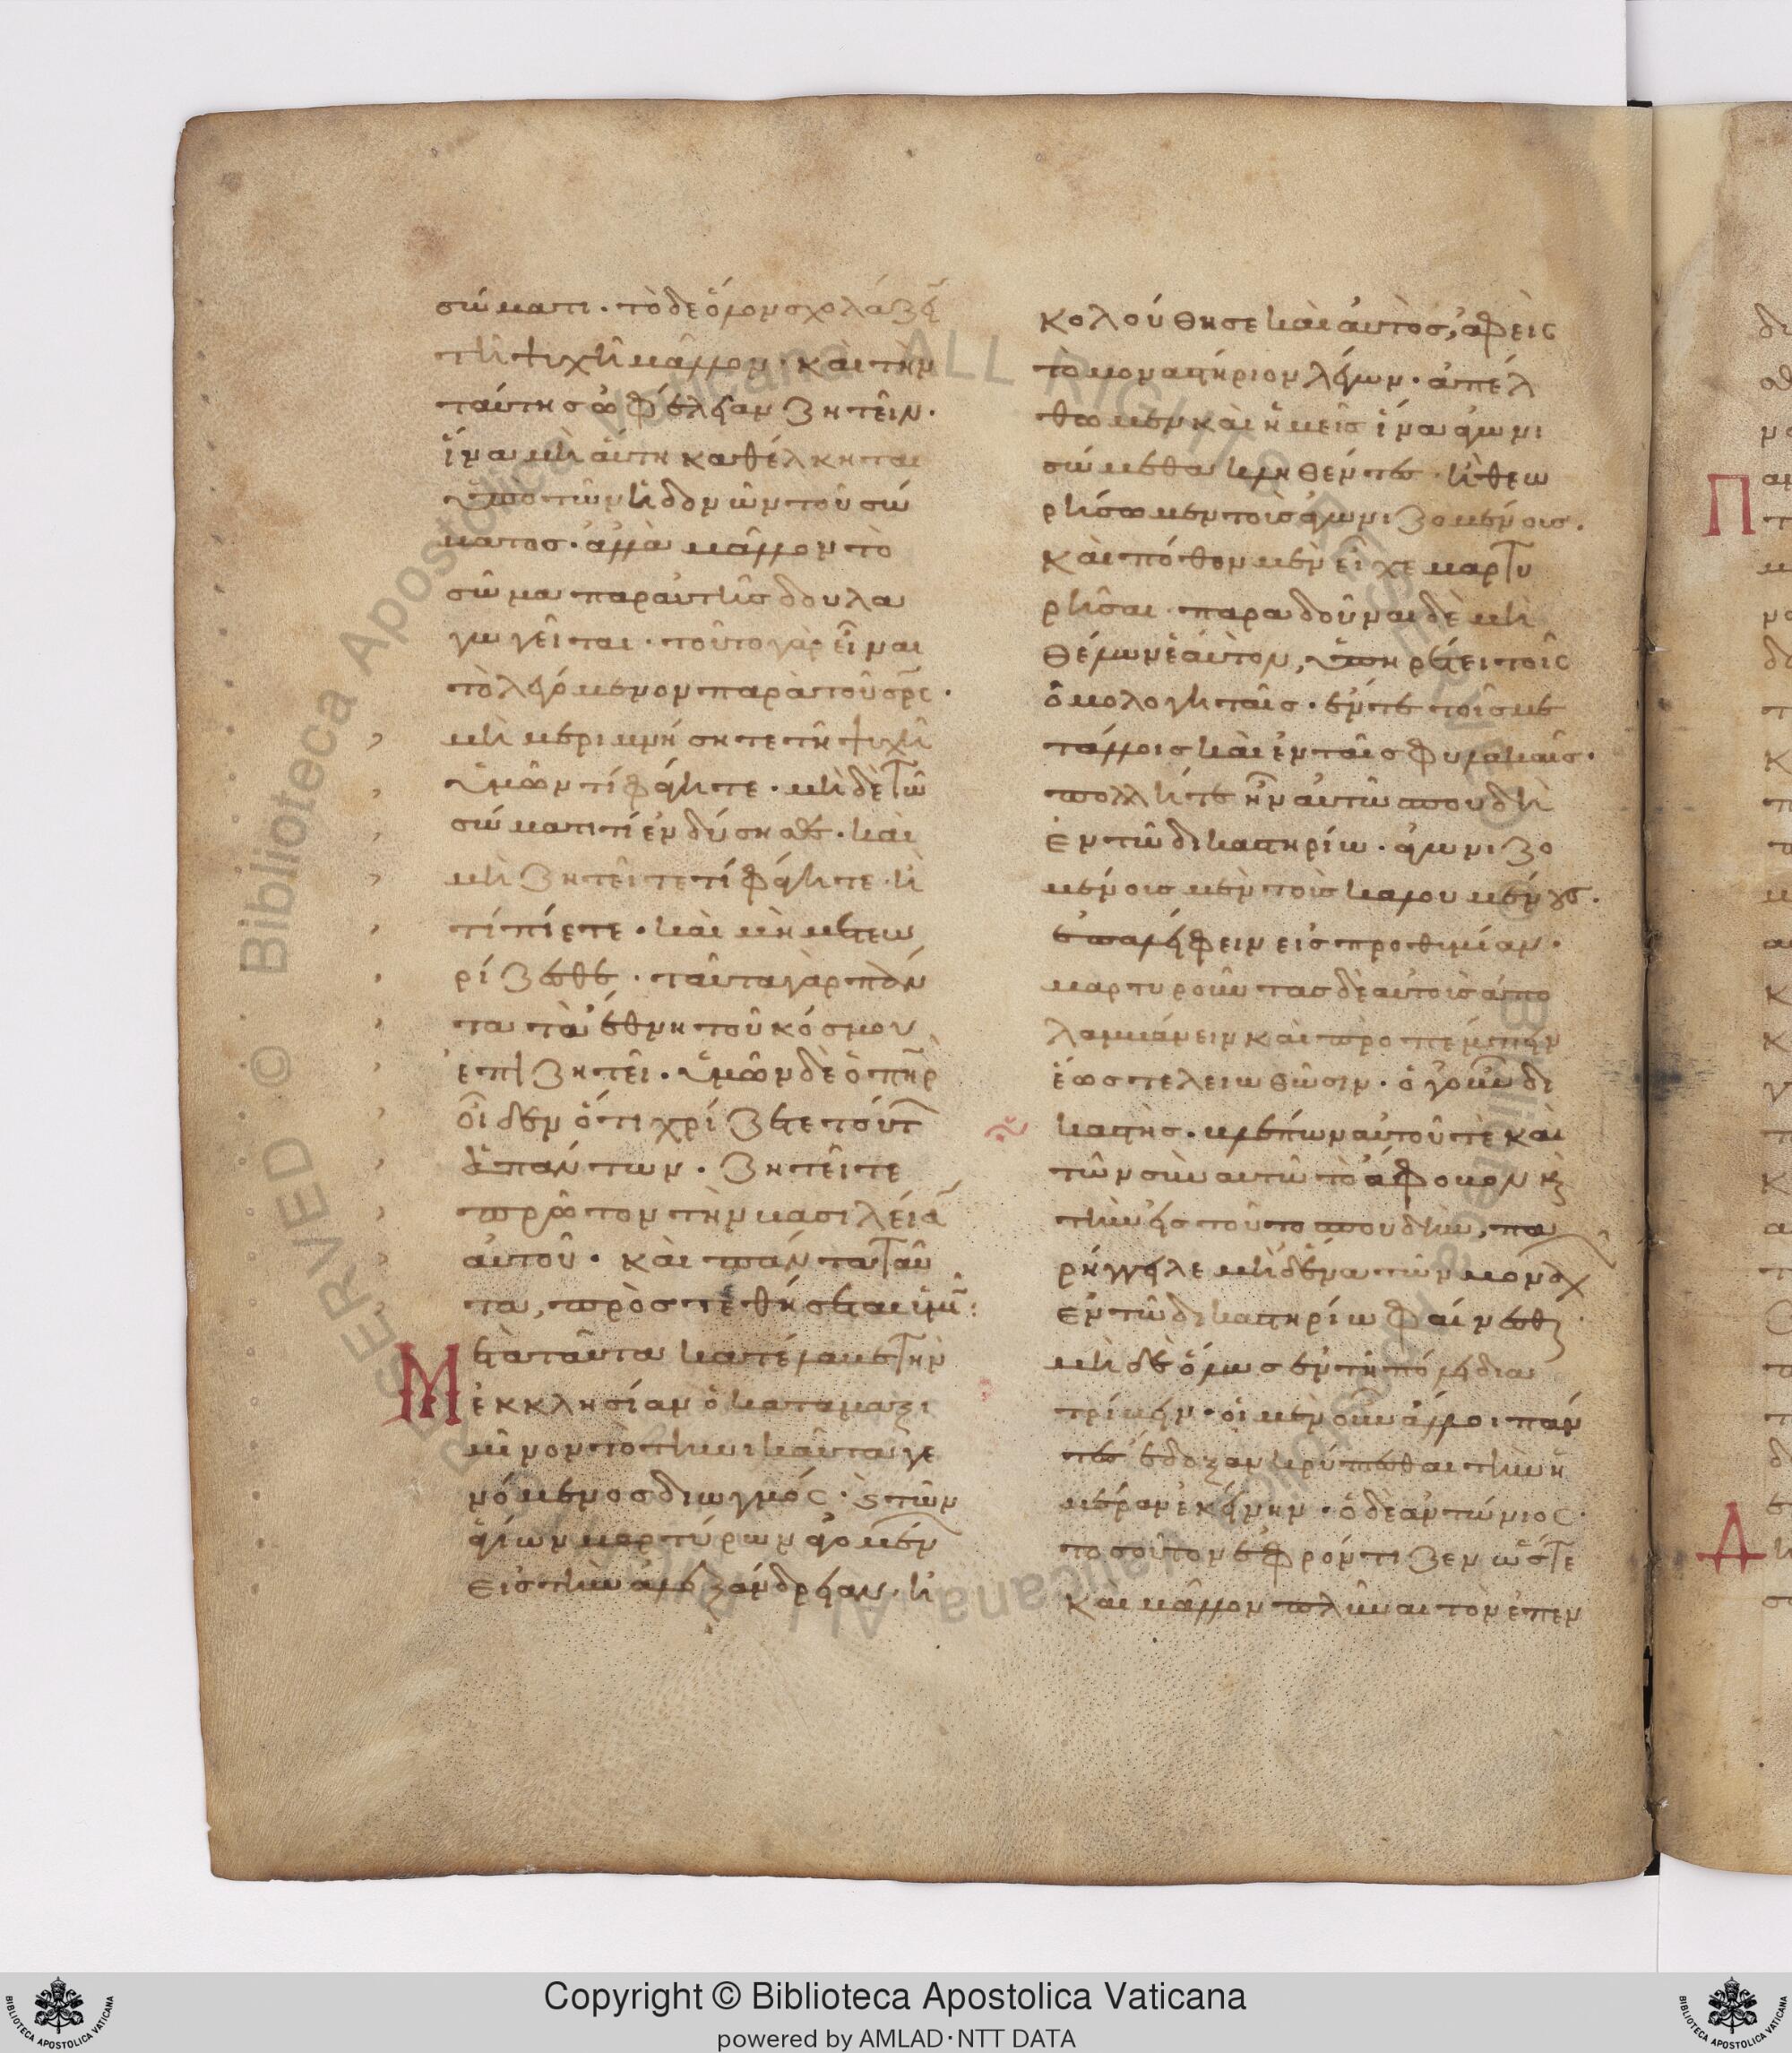 σώματι· τὸ δὲ ὅλον σχολάζειν
τῆ ψυχῆ μᾶλλον· καὶ τὴν
ταύτης ὠφέλειαν ζητεῖν·
ἵνα μὴ αὕτη καθέλκηται
ὑπὸ τῶν ἡδονῶν τοῦ σώ
ματος· ἀλλὰ μᾶλλον τὸ
σῶμα παρ' αὐτῆς δουλα
γωγεῖται· τοῦτο γὰρ εἶναι
τὸ λεγόμενον παρὰ τοῦ σρς·
μὴ μεριμνήσητε τῆ ψυχῆ
ὑμῶν τί φάγητε· μὴ δὲ τῶ
σώματι τί ἐνδύσησθε· καὶ
μὴ ζητεῖτε τί φάγητε· ἢ
τί πίετε· καὶ μὴ μετεω
ρίζεσθε· ταῦτα γὰρ πάν
τα τὰ ἔθνη τοῦ κόσμου
ἐπιζητεῖ· ὑμῶν δὲ ὁ πηρ
οἶδεν ὅτι χρίζετε τούτ
ἁπάντων· ζητεῖτε
πρῶτον τὴν βασιλείαν
αὐτοῦ· καὶ πάντα ταῦ
τα, προστεθήσεται ὑμῖν:
Μετὰ ταῦτα κατέλαβε τὴν
ἐκκλησίαν ὁ κατὰ μαξι
μῖνον τὸ τηνικαῦτα γε
νόμενος διωγμός· ϛ τῶν
ἁγίων μαρτύρων ἀγομένων
εἰς τὴν ἀλεξάνδρειαν· ἠ
κολούθησε καὶ αὐτὸς, ἀφεὶς
τὸ μοναστήριον λέγων· ἀπέλ
θωμεν καὶ ἡμεῖς ἵνα ἀγωνι
σώμεθα κληθέντες· ἢ θεω
ρήσωμεν τοῖς ἀγωνιζομένοις·
καὶ πόθον μὲν εἶχε μαρτυ
ρῆσαι· παραδοῦναι δὲ μὴ
θέλων ἑαυτὸν, ὑπηρέτει τοῖς
ὁμολογηταῖς· ἔν τε τοῖς με
τάλλοις καὶ ἐν ταῖς φυλακαῖς·
πολλή τε ἦν αὐτῶ σπουδὴ
ἐν τῶ δικαστηρίω· ἀγωνιζο
μένοις μὲν τοῖς καλουμένους·
ἐπαλείφειν εἰς προθυμίαν·
μαρτυροῦντας δὲ αὐτοῖς ἀπο
λαμβάνειν καὶ προπέμπειν
ἕως τελειωθῶσιν· ὁ γοῦν δι
καστὴς· βλέπων αὐτοῦ τὲ καὶ
τῶν σὺν αυτῶ τὸ ἄφοβον κ̀
τὴν εἰς τοῦτο σπουδὴν, πα
ρήγγειλε μηδένα τῶν μοναχ
ἐν τῶ δικαστηρίω φαίνεσθαι·
μηδὲ ὅλως ἐν τῆ πόλει δια
τρίβειν· οἱ μὲν οὖν ἄλλοι πάν
τες ἔδοξαν κρύπτεσθαι τὴν ἡ
μέραν ἐκείνην· ὁ δὲ ἀντώνιος·
τοσοῦτον ἐφρόντιζεν ὥστε
καὶ μᾶλλον πλῦναι τὸν ἐπεν